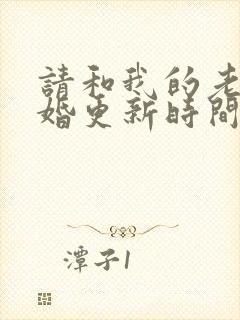 請和我的老
婚更新時間
潭子1